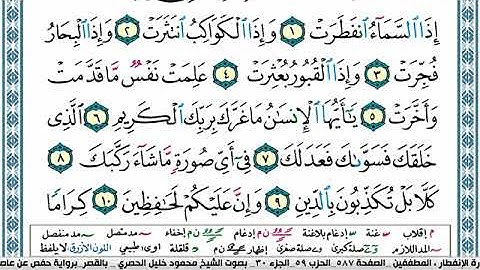 إِذَا ٱلسَّمَآءُ ٱنفَطَرَتۡ ١ وَإِذَا ٱلۡكَوَاكِبُ ٱنتَثَرَتۡ ٢ وَإِذَا ٱلۡبِحَارُ
فُجِّرَتۡ ٣ وَإِذَا ٱلۡقُبُورُ بُعۡثِرَتۡ ٤ عَلِمَتۡ نَفۡسٞ مَّا قَدَّمَتۡ
وَأَخَّرَتۡ ٥ يَٰٓأَيُّهَا ٱلۡإِنسَٰنُ مَا غَرَّكَ بِرَبِّكَ ٱلۡكَرِيمِ ٦ ٱلَّذِي
خَلَقَكَ فَسَوَّىٰكَ فَعَدَلَكَ ٧ فِيٓ أَيِّ صُورَةٖ مَّا شَآءَ رَكَّبَكَ ٨
كَلَّا بَلۡ تُكَذِّبُونَ بِٱلدِّينِ ٩ وَإِنَّ عَلَيۡكُمۡ لَحَٰفِظِينَ ١٠ كِرَامٗا
م إقلاب غنة إدغام بلاغنة ن م إدغام ن م إخفاء مد متصل مد منفصل
المد اللازم صلة كبرى صلة صغرى إظهار ن م قلقلة اوى، طبيعي اللون الأزرق لا يلفظ
ة الإنفطار، المطففين، الصفحة ٥٨٧ الحزب ٥٩ الجزء ٣٠ - بصوت الشيخ محمود خليل الحصري - بالقصر برواية حفص عن عاص